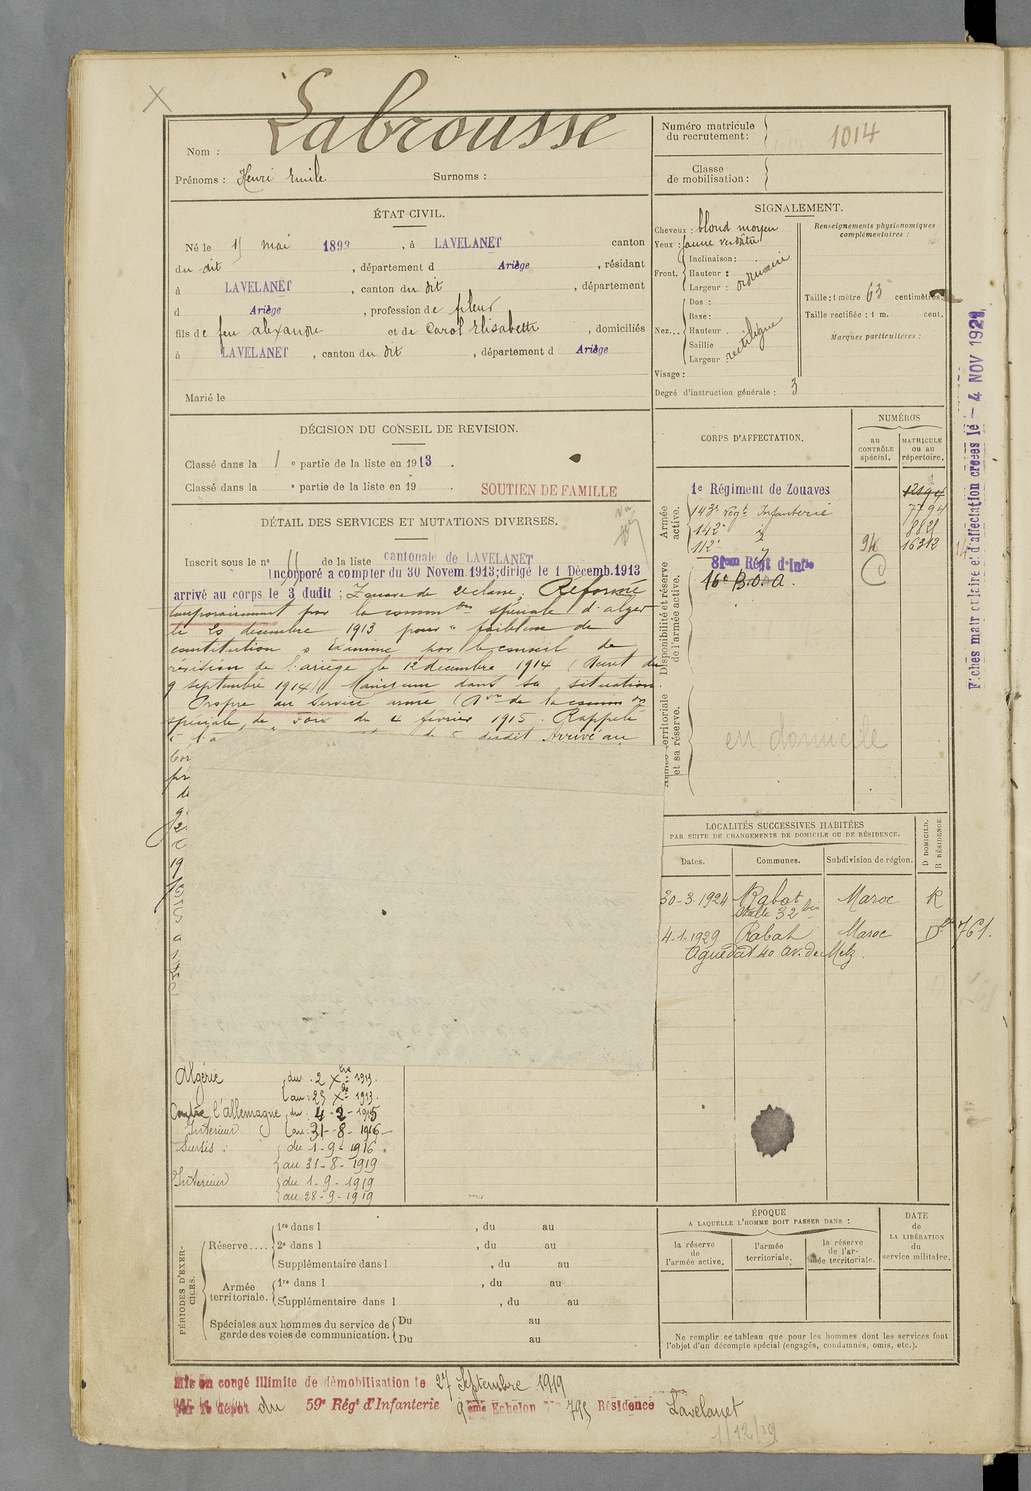 Labrousse
Nom :
Prénoms : Henri Emile Surnoms :
Numéro matricule du recrutement : 1014
Classe de mobilisation :
ÉTAT CIVIL.
Né le 15 mai 1893, à LAVELANET canton
du dit, département d Ariège, résidant
à LAVELANET, canton du dit, département
d Ariège, profession de fileur
fils de feu alexandre et de Carol Elisabeth, domiciliés
à LAVELANET, canton du dit, département d Ariège
Marié le
SIGNALEMENT.
Cheveux : blond moyen
Yeux : jaune verdâtre
Front. Inclinaison :
Hauteur :
Largeur : ordinaire
Nez... Dos :
Base :
Hauteur
Saillie
Largeur rectiligne
Visage :
Degré d'instruction générale : 3
Renseignements physionomiques complémentaires :
Taille : 1 mètre 63 centimètres.
Taille rectifiée : 1 m. cent.
Marques particulières :
DÉCISION DU CONSEIL DE REVISION.
Classé dans la 1 e partie de la liste en 1913.
Classé dans la e partie de la liste en 19 .
SOUTIEN DE FAMILLE
DÉTAIL DES SERVICES ET MUTATIONS DIVERSES.
Inscrit sous le n° 11 de la liste cantonale de LAVELANET
Incorporé a compter du 30 Novem. 1913; dirigé le 1 Décemb. 1913
arrivé au corps le 3 dudit ; Zouave de 2e classe. Réformé
temporairement par la comm on spéciale d'alger
le 20 décembre 1913 pour " faiblesse de
constitution " Examiné par le conseil de
révision de l'ariège le 12 décembre 1914 (Décret du
9 septembre 1914) Maintenu dans sa situation.
Propre au service armé (D on de la comm on
spéciale de Foix du 4 février 1915. Rappelé
dudit Arrivé au
CORPS D'AFFECTATION.
NUMÉROS
au CONTRÔLE spécial.
MATRICULE ou au répertoire.
Armée active.
1e Régiment de Zouaves
143e Régt Infanterie 7794
142e "
112e " 94 16312
81em Régt d'Infie
16e B.O.A.
Disponibilité et réserve de l'armée active.
Armée territoriale et sa réserve.
en domicile
Fiches matriculaire et d'affectation créées le – 4 NOV 1929
LOCALITÉS SUCCESSIVES HABITÉES
PAR SUITE DE CHANGEMENTS DE DOMICILE OU DE RÉSIDENCE.
Dates. Communes. Subdivision de région. D DOMICILE. R RÉSIDENCE
30-3-1924 Rabat Maroc R
32 bis
4-1-1929 Rabat Maroc D 761.
Aguedal 40 av. de Metz.
Algérie du 2 Xbre 1913.
au 25 Xbre 1913.
Contre l'allemagne du 4-2-1915
Intérieur au 31-8-1916
Sursis : du 1-9-1916.
au 31-8-1919
Intérieur du 1-9-1919
au 28-9-1919
PÉRIODES D'EXERCICES.
Réserve.... 1re dans l , du au
2e dans l , du au
Supplémentaire dans l , du au
Armée territoriale. 1re dans l , du au
Supplémentaire dans l , du au
Spéciales aux hommes du service de garde des voies de communication. Du au
Du au
ÉPOQUE
A LAQUELLE L'HOMME DOIT PASSER DANS :
la réserve de l'armée active.
l'armée territoriale.
la réserve de l'armée territoriale.
DATE de LA LIBÉRATION du service militaire.
Ne remplir ce tableau que pour les hommes dont les services font
l'objet d'un décompte spécial (engagés, condamnés, omis, etc.).
Mis en congé illimité de démobilisation le 27 Septembre 1919
par le dépôt du 59e Régt d'Infanterie 9 ème Echelon N° 795 Résidence Lavelanet
1/12/19